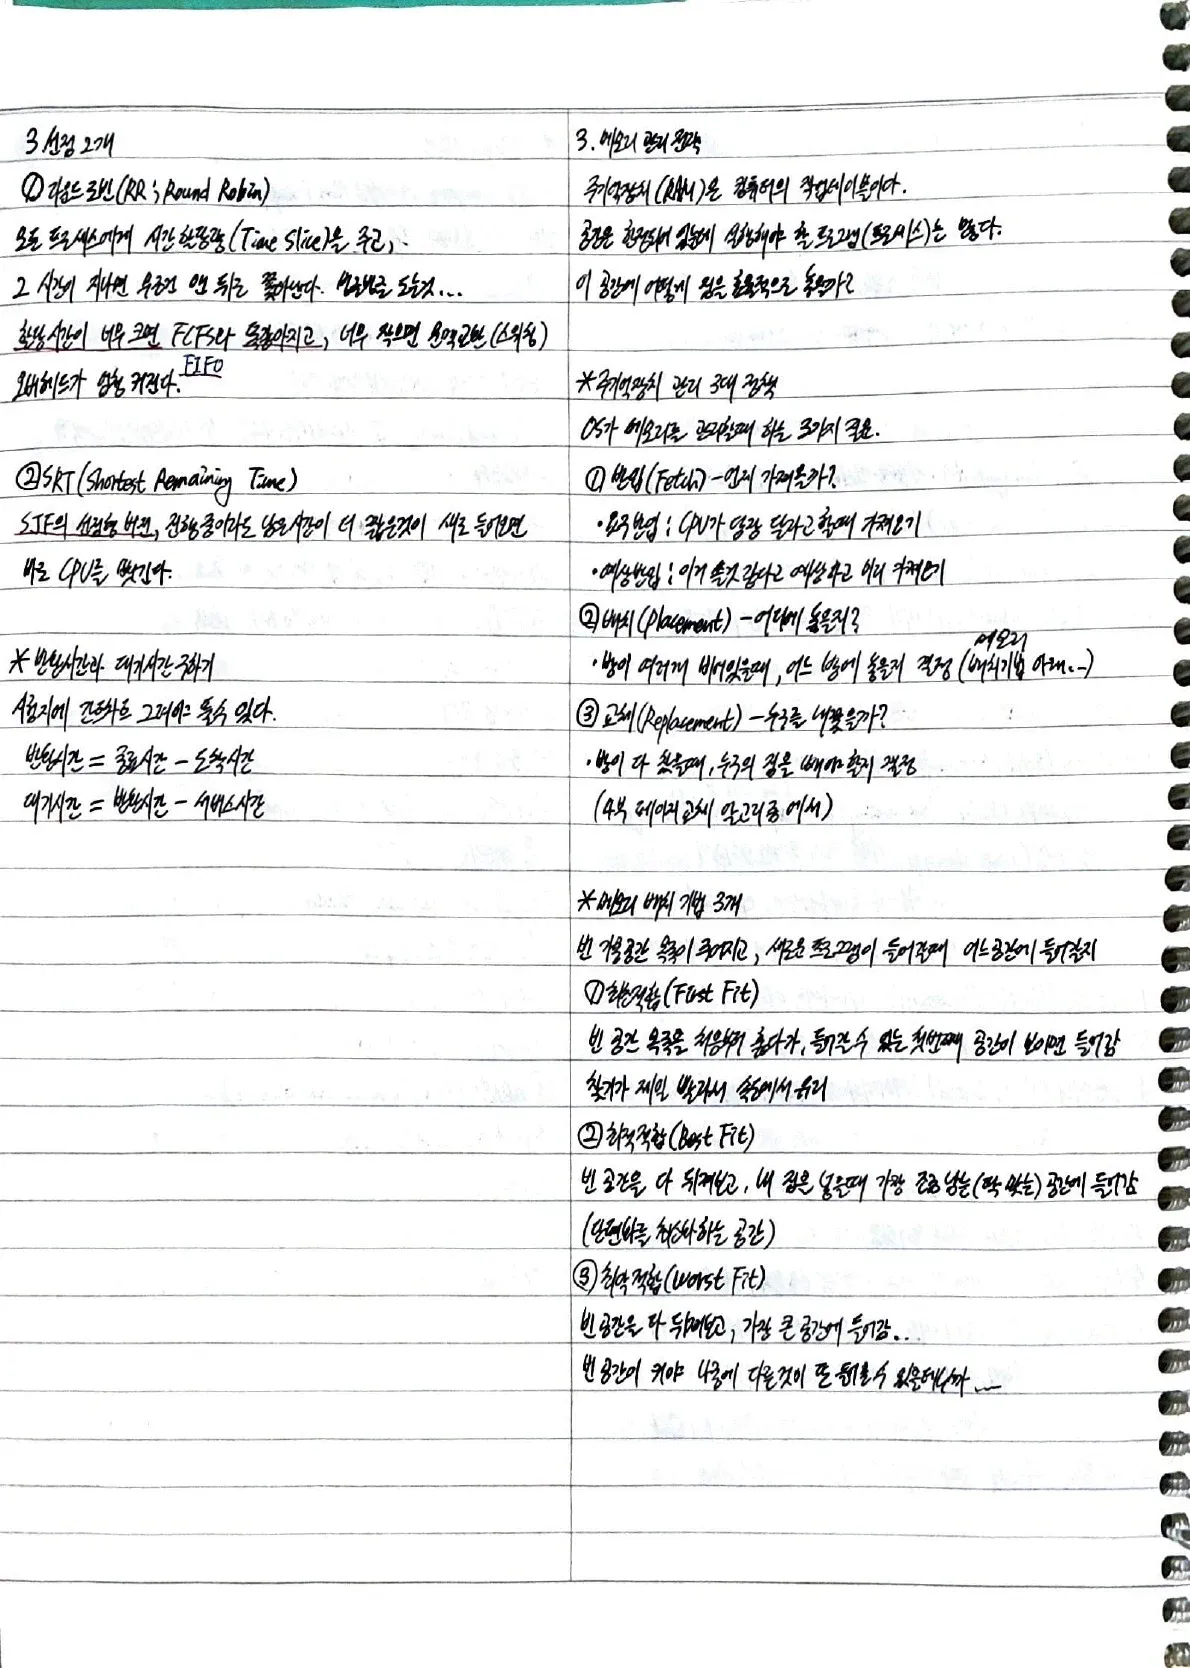 3 선점 2개
① 라운드 로빈(RR; Round Robin)
모든 프로세스에게 시간 할당량(Time Slice)을 주고,
그 시간이 지나면 무조건 맨 뒤로 쫓아낸다. 번갈아 도는것...
할당시간이 너무 크면 FCFS와 똑같아지고, 너무 작으면 문맥교환(스위칭)
FIFO
오버헤드가 엄청 커진다.
② SRT(Shortest Remaining Time)
SJF의 선점형 버전, 진행중이라도 남은시간이 더 짧은것이 새로 들어오면
바로 CPU를 뺏긴다.
* 반환시간과 대기시간 구하기
시험지에 간트차트 그려야 풀수 있다.
반환시간 = 종료시간 - 도착시간
대기시간 = 반환시간 - 서비스시간
3. 메모리 관리 전략
주기억장치(RAM)은 컴퓨터의 작업테이블이다.
공간은 한정되어 있는데 실행해야 할 프로그램(프로세스)는 많다.
이 공간에 어떻게 짐을 효율적으로 놓을까?
* 주기억장치 관리 3대 정책
OS가 메모리를 관리할때 하는 3가지 질문.
① 반입(Fetch) - 언제 가져올까?
· 요구반입 : CPU가 당장 달라고 할때 가져오기
· 예상반입 : 이거 쓸것 같다고 예상하고 미리 가져오기
② 배치(Placement) - 어디에 놓을지?
메모리
· 방이 여러개 비어있을때, 어느 방에 놓을지 결정 (배치기법 아래..~)
③ 교체(Replacement) - 누구를 내쫓을까?
· 방이 다 찼을때, 누구의 짐을 빼야할지 결정
(4부 페이지 교체 알고리즘 에서)
* 메모리 배치 기법 3개
빈 기울공간 목록이 주어지고, 새로운 프로그램이 들어갈때 어느공간에 들어갈지
① 최초적합(First Fit)
빈 공간 목록을 처음부터 훑다가, 들어갈수 있는 첫번째 공간이 보이면 들어감
찾기가 제일 빨라서 속도에서 유리
② 최적적합(Best Fit)
빈 공간을 다 뒤져보고, 내 짐을 넣을때 가장 조금 남는(딱 맞는) 공간에 들어감
(단편화를 최소화하는 공간)
③ 최악적합(Worst Fit)
빈 공간을 다 뒤져보고, 가장 큰 공간에 들어감...
빈 공간이 커야 나중에 다른것이 또 들어올수 있을테니까 ...